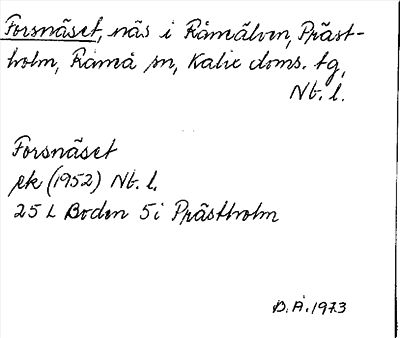 Forsnäset, näs i Råmeälven, Präst-
holm, Råneå sn, Kalix doms. tg,
Nb. l.
Forsnäset
ek (1952) Nb. l.
25 L Boden 5i Prästholm
B. Å. 1973